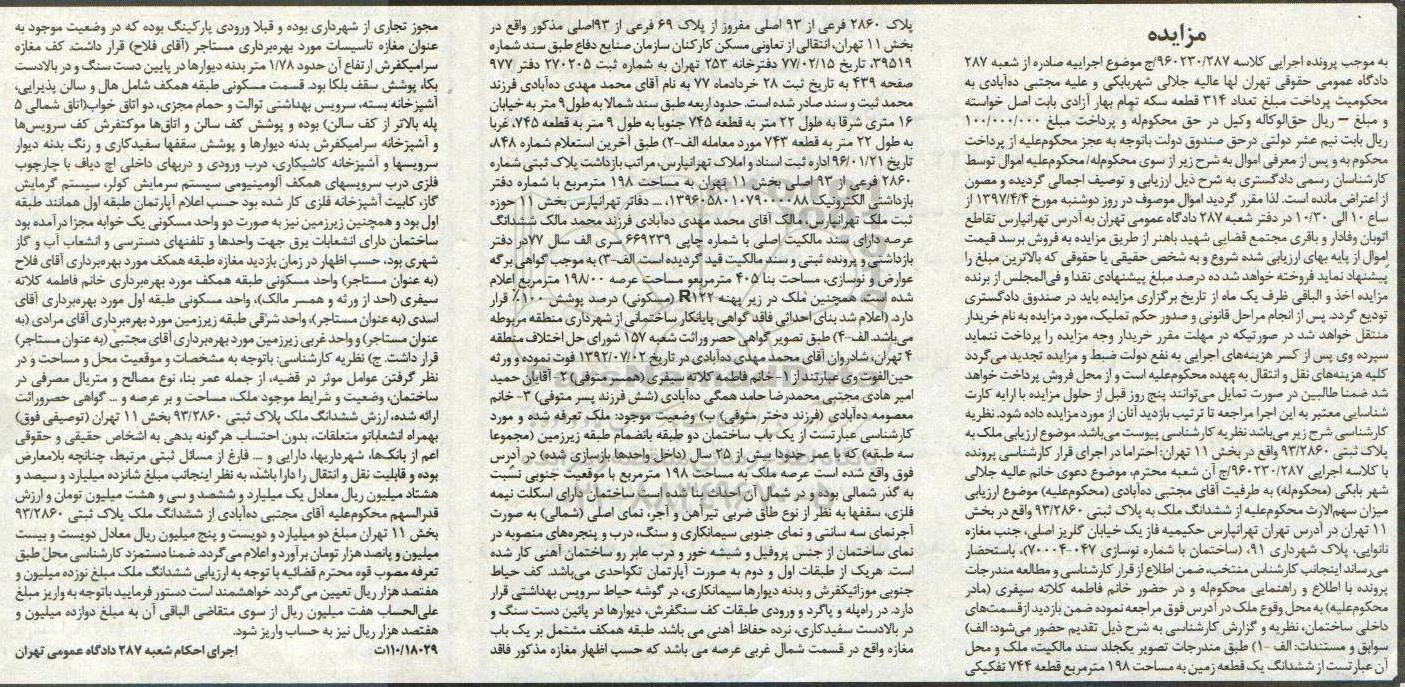 مزایده
به موجب پرونده اجرایی کلاسه ۹۶۰۲۳۰/۲۸۷/ج موضوع اجراییه صادره از شعبه ۲۸۷
دادگاه عمومی حقوقی تهران لها عالیه جلالی شهربابکی و علیه مجتبی ده‌آبادی به
محکومیت پرداخت مبلغ تعداد ۳۱۴ قطعه سکه تمام بهار آزادی بابت اصل خواسته
و مبلغ – ریال حق‌الوکاله وکیل در حق محکوم‌له و پرداخت مبلغ ۱۰۰/۰۰۰/۰۰۰
ریال بابت نیم عشر دولتی درحق صندوق دولت باتوجه به عجز محکوم‌علیه از پرداخت
محکوم به و پس از معرفی اموال به شرح زیر از سوی محکوم‌له/محکوم‌علیه اموال توسط
کارشناسان رسمی دادگستری به شرح ذیل ارزیابی و توصیف اجمالی گردیده و مصون
از اعتراض مانده است. لذا مقرر گردید اموال موصوف در روز دوشنبه مورخ ۱۳۹۷/۴/۴ از
ساع ۱۰ الی ۱۰/۳۰ در دفتر شعبه ۲۸۷ دادگاه عمومی تهران به آدرس تهرانپارس تقاطع
اتوبان وفادار و باقری مجتمع قضایی شهید باهنر از طریق مزایده به فروش برسد قیمت
اموال از پایه بهای ارزیابی شده شروع و به شخص حقیقی یا حقوقی که بالاترین مبلغ را
پیشنهاد نماید فروخته خواهد شد ده درصد مبلغ پیشنهادی نقدا و فی‌المجلس از برنده
مزایده اخذ و الباقی ظرف یک ماه از تاریخ برگزاری مزایده باید در صندوق دادگستری
تودیع گردد. پس از انجام مراحل قانونی و صدور حکم تملیک، مورد مزایده به نام خریدار
منتقل خواهد شد در صورتیکه در مهلت مقرر خریدار وجه مزایده را پرداخت ننماید
سپرده وی پس از کسر هزینه‌های اجرایی به نفع دولت ضبط و مزایده تجدید می‌گردد
کلیه هزینه‌های نقل و انتقال به عهده محکوم‌علیه است و از محل فروش پرداخت خواهد
شد ضمنا طالبین در صورت تمایل می‌توانند پنج روز قبل از حلول مزایده با ارایه کارت
شناسایی معتبر به این اجرا مراجعه تا ترتیب بازدید آنان از مورد مزایده داده شود. نظریه
کارشناسی شرح زیر می‌باشد نظریه کارشناسی پیوست می‌باشد. موضوع ارزیابی ملک به
پلاک ثبتی ۹۳/۲۸۶۰ واقع در بخش ۱۱ تهران: احتراما در اجرای قرار کارشناسی پرونده
با کلاسه اجرایی ۹۶۰۲۳۰/۲۸۷/ج آن شعبه محترم، موضوع دعوی خانم عالیه جلالی
شهر بابکی (محکوم‌له) به طرفیت آقای مجتبی ده‌آبادی (محکوم‌علیه) موضوع ارزیابی
میزان سهم‌الارث محکوم‌علیه از ششدانگ ملک به پلاک ثبتی ۹۳/۲۸۶۰ واقع در بخش
۱۱ تهران در آدرس تهران تهرانپارس حکیمیه فاز یک خیابان گلریز اصلی، جنب مغازه
نانوایی، پلاک شهرداری ۹۱، (ساختمان با شماره نوسازی ۰۴۷-۷۰۰۰۴)، باستحضار
می‌رساند اینجانب کارشناس منتخب، ضمن اطلاع از قرار کارشناسی و مطالعه مندرجات
پرونده با اطلاع و راهنمایی محکوم‌له و در حضور خانم فاطمه کلاته سیفری (مادر
محکوم‌علیه) به محل وقوع ملک در آدرس فوق مراجعه نموده ضمن بازدید از قسمت‌های
داخلی ساختمان، نظریه و گزارش کارشناسی به شرح ذیل تقدیم حضور می‌شود: الف)
سوابق و مستندات: الف -۱) طبق مندرجات تصویر یکجلد سند مالکیت، ملک و محل
آن عبارتست از ششدانگ یک قطعه زمین به مساحت ۱۹۸ مترمربع قطعه ۷۴۴ تفکیکی
پلاک ۲۸۶۰ فرعی از ۹۳ اصلی مفروز از پلاک ۶۹ فرعی از ۹۳اصلی مذکور واقع در
بخش ۱۱ تهران، انتقالی از تعاونی مسکن کارکنان سازمان صنایع دفاع طبق سند شماره
۳۹۵۱۹، تاریخ ۷۷/۰۲/۱۵ دفترخانه ۲۵۳ تهران به شماره ثبت ۲۷۰۲۰۵ دفتر ۹۷۷
صفحه ۴۳۹ به تاریخ ثبت ۲۸ خردادماه ۷۷ به نام آقای محمد مهدی ده‌آبادی فرزند
محمد ثبت و سند صادر شده است. حدود اربعه طبق سند شمالا به طول ۹ متر به خیابان
۱۶ متری شرقا به طول ۲۲ متر به قطعه ۷۴۵ جنوبا به طول ۹ متر به قطعه ۷۴۵، غربا
به طول ۲۲ متر به قطعه ۷۴۳ مورد معامله الف-۲) طبق آخرین استعلام شماره ۸۴۸،
تاریخ ۹۶/۰۱/۲۱ اداره ثبت اسناد و املاک تهرانپارس، مراتب بازداشت پلاک ثبتی شماره
۲۸۶۰ فرعی از ۹۳ اصلی بخش ۱۱ تهران به مساحت ۱۹۸ مترمربع با شماره دفتر
بازداشتی الکترونیک ۱۳۹۶۰۵۸۰۱۰۷۹۰۰۰۰۸۸، ... دفاتر تهرانپارس بخش ۱۱ حوزه
ثبت ملک تهرانپارس، مالک آقای محمد مهدی ده‌آبادی فرزند محمد مالک ششدانگ
عرصه دارای سند مالکیت اصلی با شماره چاپی ۶۶۹۲۳۹ سری الف سال ۷۷در دفتر
بازداشتی و پرونده ثبتی و سند مالکیت قید گردیده است. الف-۳) به موجب گواهی برگه
عوارض و نوسازی، مساحت بنا ۴۰۵ مترمربع‌و مساحت عرصه ۱۹۸/۰۰ مترمربع اعلام
شده است همچنین ملک در زیر پهنه R۱۲۲ (مسکونی) درصد پوشش ۱۰۰٪ قرار
دارد. (اعلام شد بنای احداثی فاقد گواهی پایانکار ساختمانی از شهرداری منطقه مربوطه
می‌باشد. الف-۴) طبق تصویر گواهی حصر وراثت شعبه ۱۵۷ شورای حل اختلاف منطقه
۴ تهران، شادروان آقای محمد مهدی ده‌آبادی در تاریخ ۱۳۹۲/۰۷/۰۲ فوت نموده و ورثه
حین‌الفوت وی عبارتند از ۱- خانم فاطمه کلاته سیفری (همسر متوفی) ۲- آقایان حمید
امیر هادی مجتبی محمدرضا حامد همگی ده‌آبادی (شش فرزند پسر متوفی) ۳- خانم
معصومه ده‌آبادی (فرزند دختر متوفی) ب) وضعیت موجود: ملک تعرفه شده و مورد
کارشناسی عبارتست از یک باب ساختمان دو طبقه بانضمام طبقه زیرزمین (مجموعا
سه طبقه) که با عمل حدودا بیش از ۲۵ سال (داخل واحدها بازسازی شده) در آدرس
فوق واقع شده است عرصه ملک به مساحت ۱۹۸ مترمربع با موقعیت جنوبی نسبت
به گذر شمالی بوده و در شمال آن احداث بنا شده است ساختمان دارای اسکلت نیمه
فلزی، سقفها به نظر از نوع طاق ضربی تیرآهن و آجر، نمای اصلی (شمالی) به صورت
آجرنمای سه سانتی و نمای جنوبی سیمانکاری و سنگ، درب و پنجره‌های منصوبه در
نمای ساختمان از جنس پروفیل و شیشه خور و درب عابر رو ساختمان آهنی کار شده
است. هریک از طبقات اول و دوم به صورت آپارتمان تکواحدی می‌باشد. کف حیاط
جنوبی موزائیکفرش و بدنه دیوارها سیمانکاری، در گوشه حیاط سرویس بهداشتی قرار
دارد. در راه‌پله و پاگرد و ورودی طبقات کف سنگفرش، دیوارها در پائین دست سنگ و
در بالادست سفیدکاری، نرده حفاظ آهنی می باشد. طبقه همکف مشتمل بر یک باب
مغازه واقع در قسمت شمال غربی عرصه می باشد که حسب اظهار مغازه مذکور فاقد
مجوز تجاری از شهرداری بوده و قبلا ورودی پارکینگ بوده که در وضعیت موجود به
عنوان مغازه تاسیسات مورد بهره‌برداری مستاجر (آقای فلاح) قرار داشت. کف مغازه
سرامیکفرش ارتفاع آن حدود ۱/۷۸ متر بدنه دیوارها در پایین دست سنگ و در بالادست
بکا، پوشش سقف بلکا بود. قسمت مسکونی طبقه همکف شامل هال و سالن پذیرایی،
آشپزخانه بسته، سرویس بهداشتی توالت و حمام مجزی، دو اتاق خواب(اتاق شمالی ۵
پله بالاتر از کف سالن) بوده و پوشش کف سالن و اتاق‌ها موکتفرش کف سرویس‌ها
و آشپزخانه سرامیکفرش بدنه دیوارها و پوشش سقفها سفیدکاری و رنگ بدنه دیوار
سرویسها و آشپزخانه کاشیکاری، درب ورودی و دربهای داخلی اچ دیاف با چارچوب
فلزی درب سرویسهای همکف آلومینیومی سیستم سرمایش کولر، سیستم گرمایش
گاز، کابیت آشپزخانه فلزی کار شده بود حسب اعلام آپارتمان طبقه اول همانند طبقه
اول بود و همچنین زیرزمین نیز به صورت دو واحد مسکونی یک خوابه مجزا درآمده بود
ساختمان دارای انشعابات برق جهت واحدها و تلفنهای دسترسی و انشعاب آب و گاز
شهری بود، حسب اظهار در زمان بازدید مغازه طبقه همکف مورد بهره‌برداری آقای فلاح
(به عنوان مستاجر) واحد مسکونی طبقه همکف مورد بهره‌برداری خانم فاطمه کلاته
سیفری (احد از ورثه و همسر مالک)، واحد مسکونی طبقه اول مورد بهره‌برداری آقای
اسدی (به عنوان مستاجر)، واحد شرقی طبقه زیرزمین مورد بهره‌برداری آقای مرادی (به
عنوان مستاجر) و واحد غربی زیرزمین مورد بهره‌برداری آقای مجتبی (به عنوان مستاجر)
قرار داشت. ج) نظریه کارشناسی: باتوجه به مشخصات و موقعیت محل و مساحت و در
نظر گرفتن عوامل موثر در قضیه، از جمله عمر بنا، نوع مصالح و متریال مصرفی در
ساختمان، وضعیت و شرایط موجود ملک، مساحت و بر عرصه و ... گواهی حصروراثت
ارائه شده، ارزش ششدانگ ملک پلاک ثبتی ۹۳/۲۸۶۰ بخش ۱۱ تهران (توصیفی فوق)
بهمراه انشعاباتو متعلقات، بدون احتساب هرگونه بدهی به اشخاص حقیقی و حقوقی
اعم از بانک‌ها، شهرداریها، دارایی و ... فارغ از مسائل ثبتی مرتبط، چنانچه بلامعارض
بوده و قابلیت نقل و انتقال را دارا باشد، به نظر اینجانب مبلغ شانزده میلیارد و سیصد و
هشتاد میلیون ریال معادل یک میلیارد و ششصد و سی و هشت میلیون تومان و ارزش
قدرالسهم محکوم‌علیه آقای مجتبی ده‌آبادی از ششدانگ ملک پلاک ثبتی ۹۳/۲۸۶۰
بخش ۱۱ تهران مبلغ دو میلیارد و دویست و پنج میلیون ریال معادل دویست و بیست
میلیون و پانصد هزار تومان برآورد و اعلام می‌گردد. ضمنا دستمزد کارشناسی محل طبق
تعرفه مصوب قوه محترم قضائیه با توجه به ارزیابی ششدانگ ملک مبلغ نوزده میلیون و
هفتصد هزار ریال تعیین می‌گردد. خواهشمند است دستور فرمایید باتوجه به واریز مبلغ
علی‌الحساب هفت میلیون ریال از سوی متقاضی الباقی آن به مبلغ دوازده میلیون و
هفتصد هزار ریال نیز به حساب واریز شود.
۱۱۰/۱۸۰۲۹ت اجرای احکام شعبه ۲۸۷ دادگاه عمومی تهران